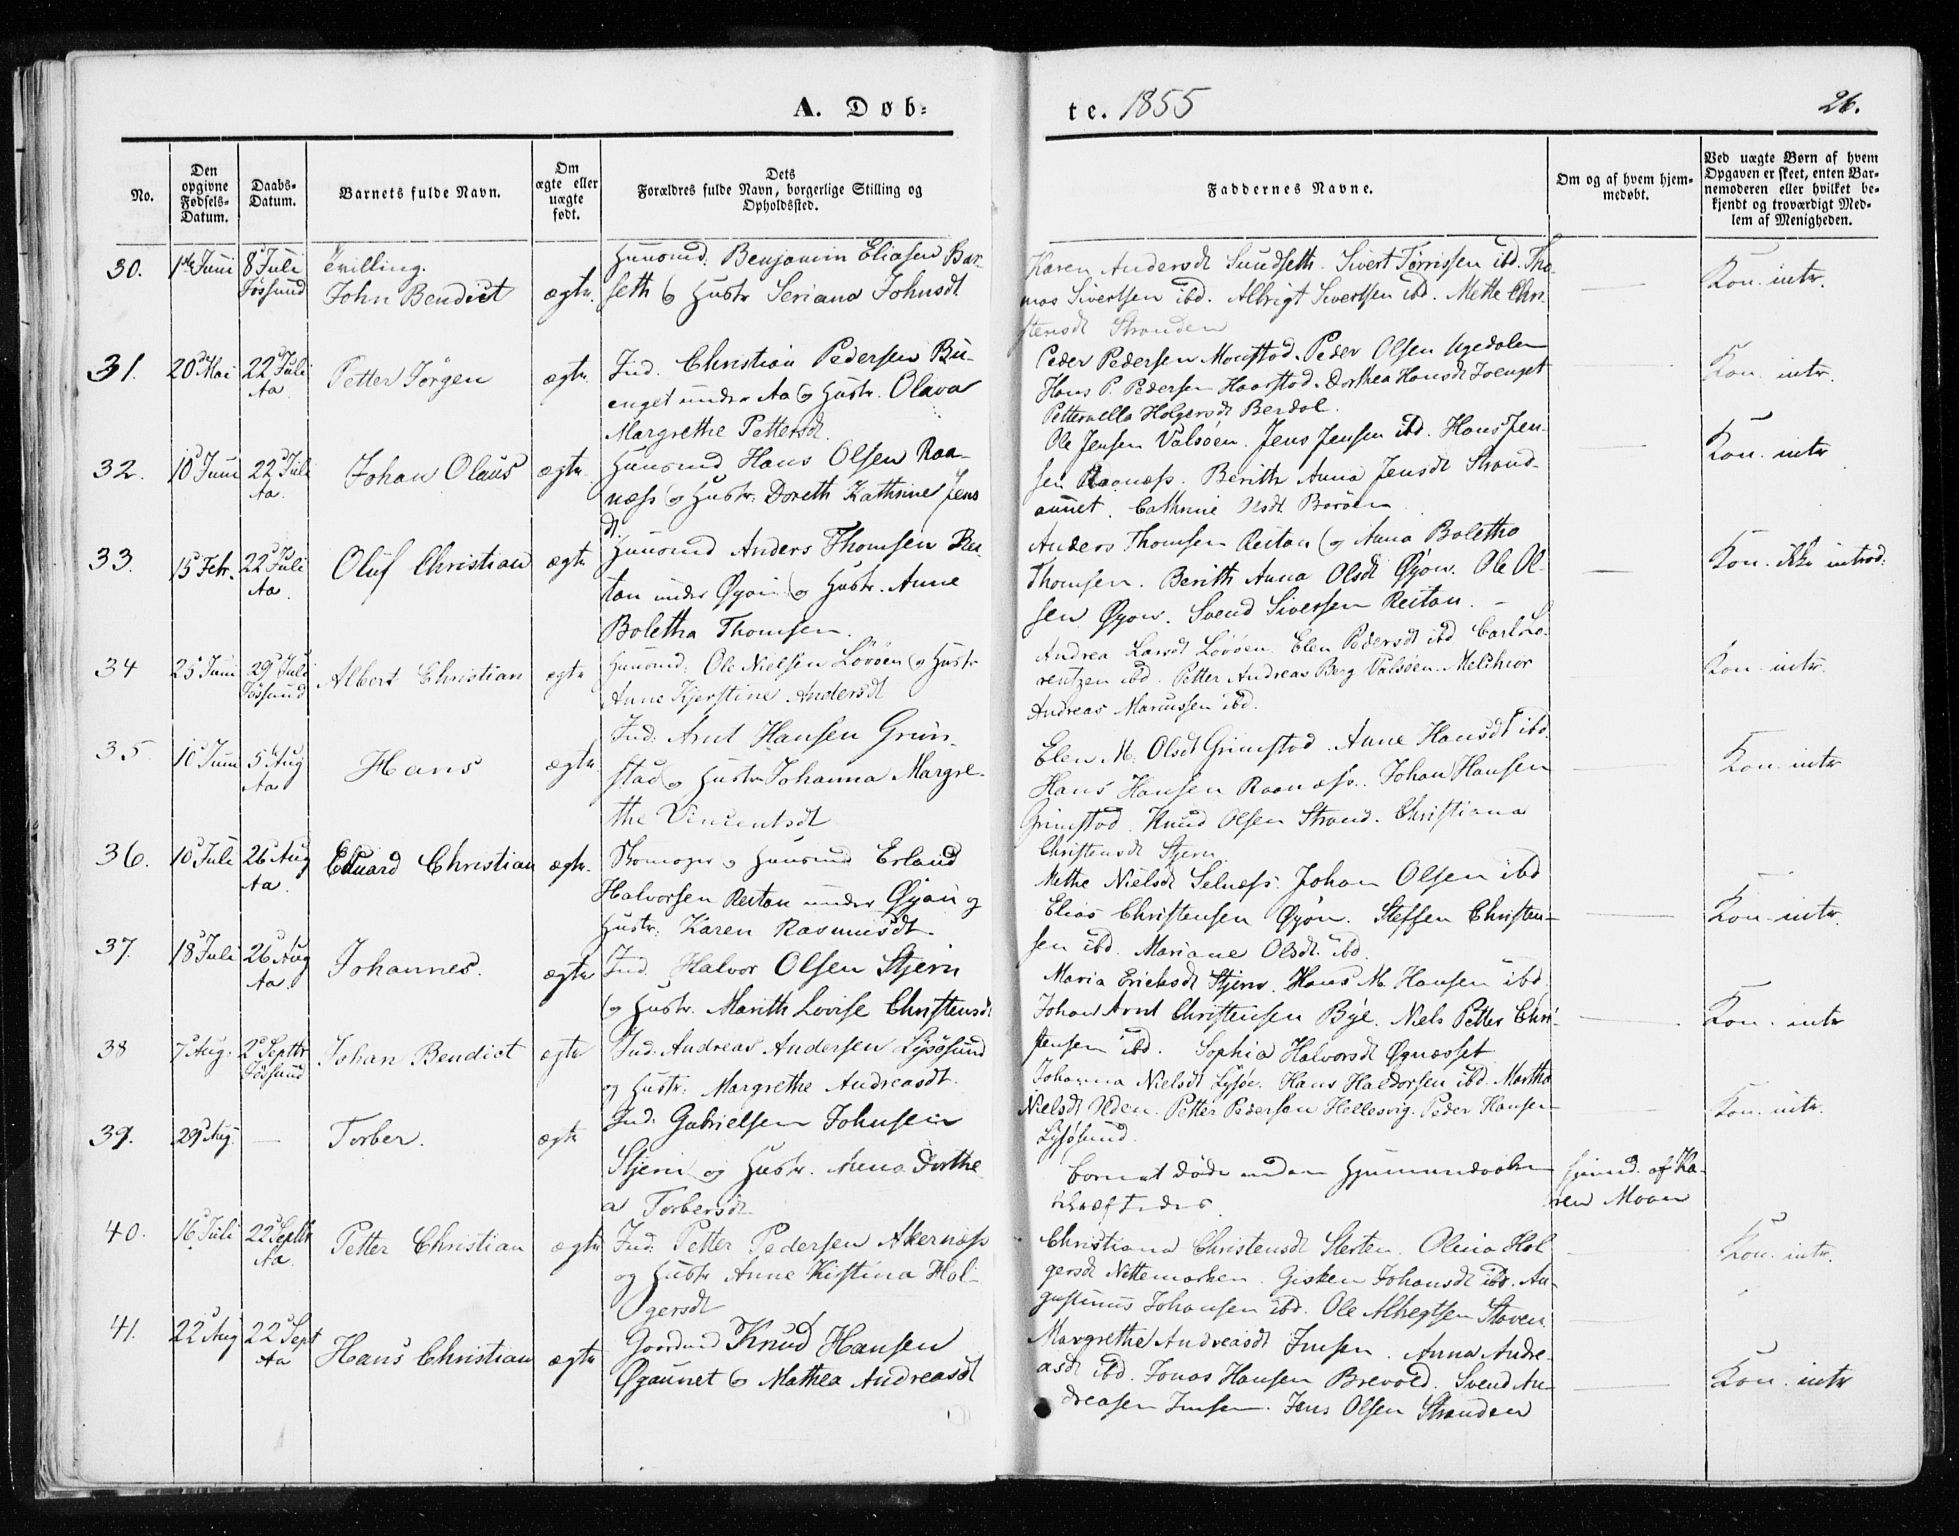 A. Døb-
te. 1855
26.
No.
Den opgivne Fødsels-Datum.
Daabs-Datum.
Barnets fulde Navn.
Om ægte eller uægte født.
Dets Forældres fulde Navn, borgerlige Stilling og Opholdssted.
Faddernes Navne.
Om og af hvem hjem-medøbt.
Ved uægte Børn af hvem Opgaven er skeet, enten Bar-nemoderen eller hvilket be-kjendt og troværdigt Med-lem af Menigheden.
30. 1ste Juni 8 Juli Jøssund
Tvilling. John Bendict ægte.
Huusmd. Benjamin Eliasen Bar-
seth og Hustr Seriana Johnsdt
Karen Andersdt Sundseth. Sivert Tørrissen ibd. Tho-
mas Sivertsen ibd. Albrigt Sivertsen ibd. Mette Chri-
stensdt Stranden
Kon. intr.
31. 20 Mai 22 Juli Aa
Petter Jörgen ægte
Ind. Christian Pedersen Bu-
enget under Aa og Hustr. Olava
Margrethe Pettersdt.
Peder Pedersen Monstad. Peder Olsen Ugedalen
Hans P. Pedersen Haarstad. Dorthea Hansdt
Petternella Holgersdt Berdal.
Kon. intr.
32. 10 Juni 22 Juli Aa.
Johan Olaus ægte
Huusmd Hans Olsen Raa-
næss og Hustr. Doreth Kathrine Jens
dt.
Ole Jensen Valsöen. Jens Jensen ibd. Hans Jen-
sen Raanæss. Berith Anna Jensdt Strand-
aunet. Cathrine Olsdt Boröen
Kon. intr
33. 15 Febr. 22 Juli Aa
Oluf Christian ægte
Huusmd Anders Thomsen Rei-
tan under Øyan og Hustr. Anne
Boletha Thomsen.
Anders Thomsen Reitan og Anna Boletha
Thomsen. Berith Anna Olsdt Øyan. Ole Ol-
sen Øyan. Svend Siversen Reitan.
Kon. ikke introd.
34 25 Juni 29 Juli Jøssund
Albert Christian ægte
Huusmd. Ole Nielsen Lövöen og Hustr
Anne Kjerstine Andersdt
Andrea Larsdt Lövöen. Elen Pedersdt ibd Carl Lo-
rentzen ibd. Petter Andreas Berg Valsöen. Melchior
Andreas Marcussen ibd.
Kon. intr.
35 10 Juni 5 Aug Aa
Hans ægte
Ind. Arnt Hansen Grim-
stad og Hustr Johanna Margre-
the Vincentsdt
Elen M. Olsdt Grimstad. Anne Hansdt ibd.
Hans Hansen Raanæss. Johan Hansen
Grimstad. Knud Olsen Strand. Christiana
Christensdt Stjern
Kon. intr
36. 10 Juli 26 Aug Aa.
Eduard Christian ægte.
Skomager og Huusmd Erland
Halvorsen Reitan under Øyan og
Hustr. Karen Rasmusdt
Methe Nielsdt Selnæss. Johan Olsen ibd
Elias Christensen Øyan. Steffen Christen-
sen ibd. Mariane Olsdt ibd.
Kon. intr.
37. 18 Juli 26 Aug Aa.
Johannes. ægte
Ind. Halvor Olsen Stjern
og Hustr. Marith Lovise Christensdt
Maria Ericksdt Stjern. Hans M. Hansen ibd.
Johan Arnt Christensen Bye. Niels Petter Chri-
stensen ibd. Sophia Halvorsdt
Kon. intr
38 7 Aug. 2 Septbr Jøssund
Johan Bendict ægte
Ind. Andreas Andersen Lysösund
og Hustr. Margrethe Andreasdt.
Johanna Nielsdt Lysöe. Hans Haldorsen ibd. Martha
Nielsdt Uden. Petter Pedersen Hellesvig. Peder Hansen
Lysösund.
Kon. intr.
39. 29 Aug. —
Torber. ægte
Ind. Gabrielsen Johnsen
Stjern og Hustr. Anna Dorthe
a Torbersdt
Barnet døde inden Hjemmedaaben
bekræftedes.
hjemd. af Ka-
ren Moan
40. 16 Juli 22 Septbr Aa
Petter Christian ægte
Ind. Petter Pedersen Akernæss
og Hustr Anne Kistina Hol-
gersdt
Christiana Christensdt Sterten. Olina Hol
gersdt Nettemarken. Gisken Johansdt ibd. Au-
gustinus Johansen ibd. Ole Albregtsen Staven.
Kon. intr.
41. 22 Aug 22 Sept Aa
Hans Christian ægte
Gaardmd Knud Hansen
Øgaunet og Mathea Andreasdt
Margrethe Andreasdt Imsen. Anna Andre-
asdt ibd. Jonas Hansen Brevold. Svend An-
dreasen Imsen. Jens Olsen Stranden
Kon. intr